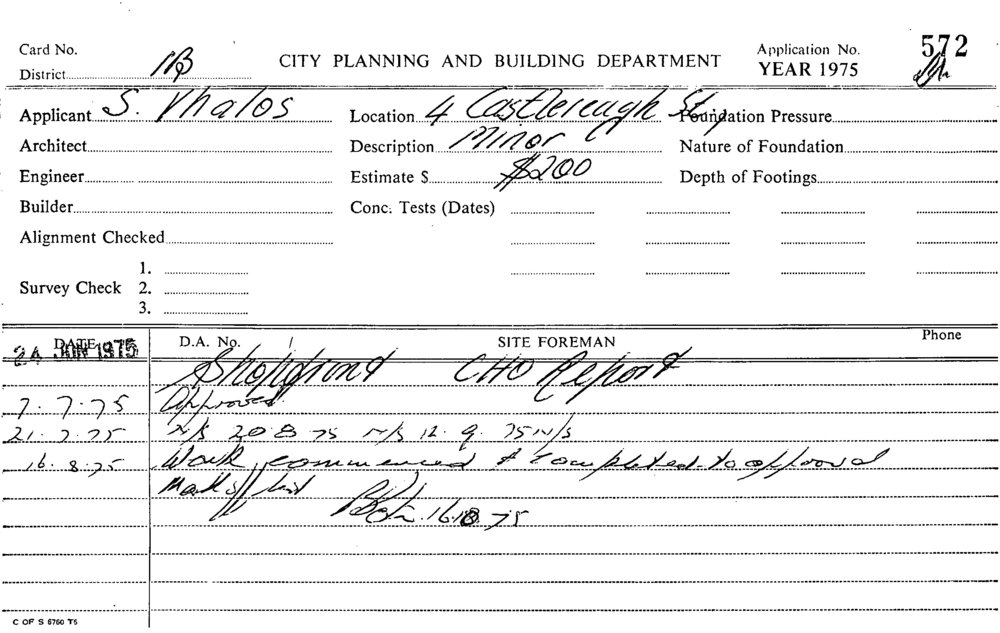 Card No.
CITY PLANNING AND BUILDING DEPARTMENT
Application No. 572
District
YEAR 1975
Applicant S. Vhalos Location 4 Castlereagh St, Foundation Pressure
Architect Description Minor Nature of Foundation
Engineer Estimate $ $200 Depth of Footings
Builder Conc. Tests (Dates)
Alignment Checked
1.
Survey Check 2.
3.
DATE D.A. No. SITE FOREMAN Phone
24 JUN 1975 Shopfront CHO Report
7.7.75 Approved
21.7.75 N/S 20 8 75 N/S 12.9.75 N/S
16.8.75 Work commenced & completed to approval
Mark off list
16.10.75
C OF S 6760 T5